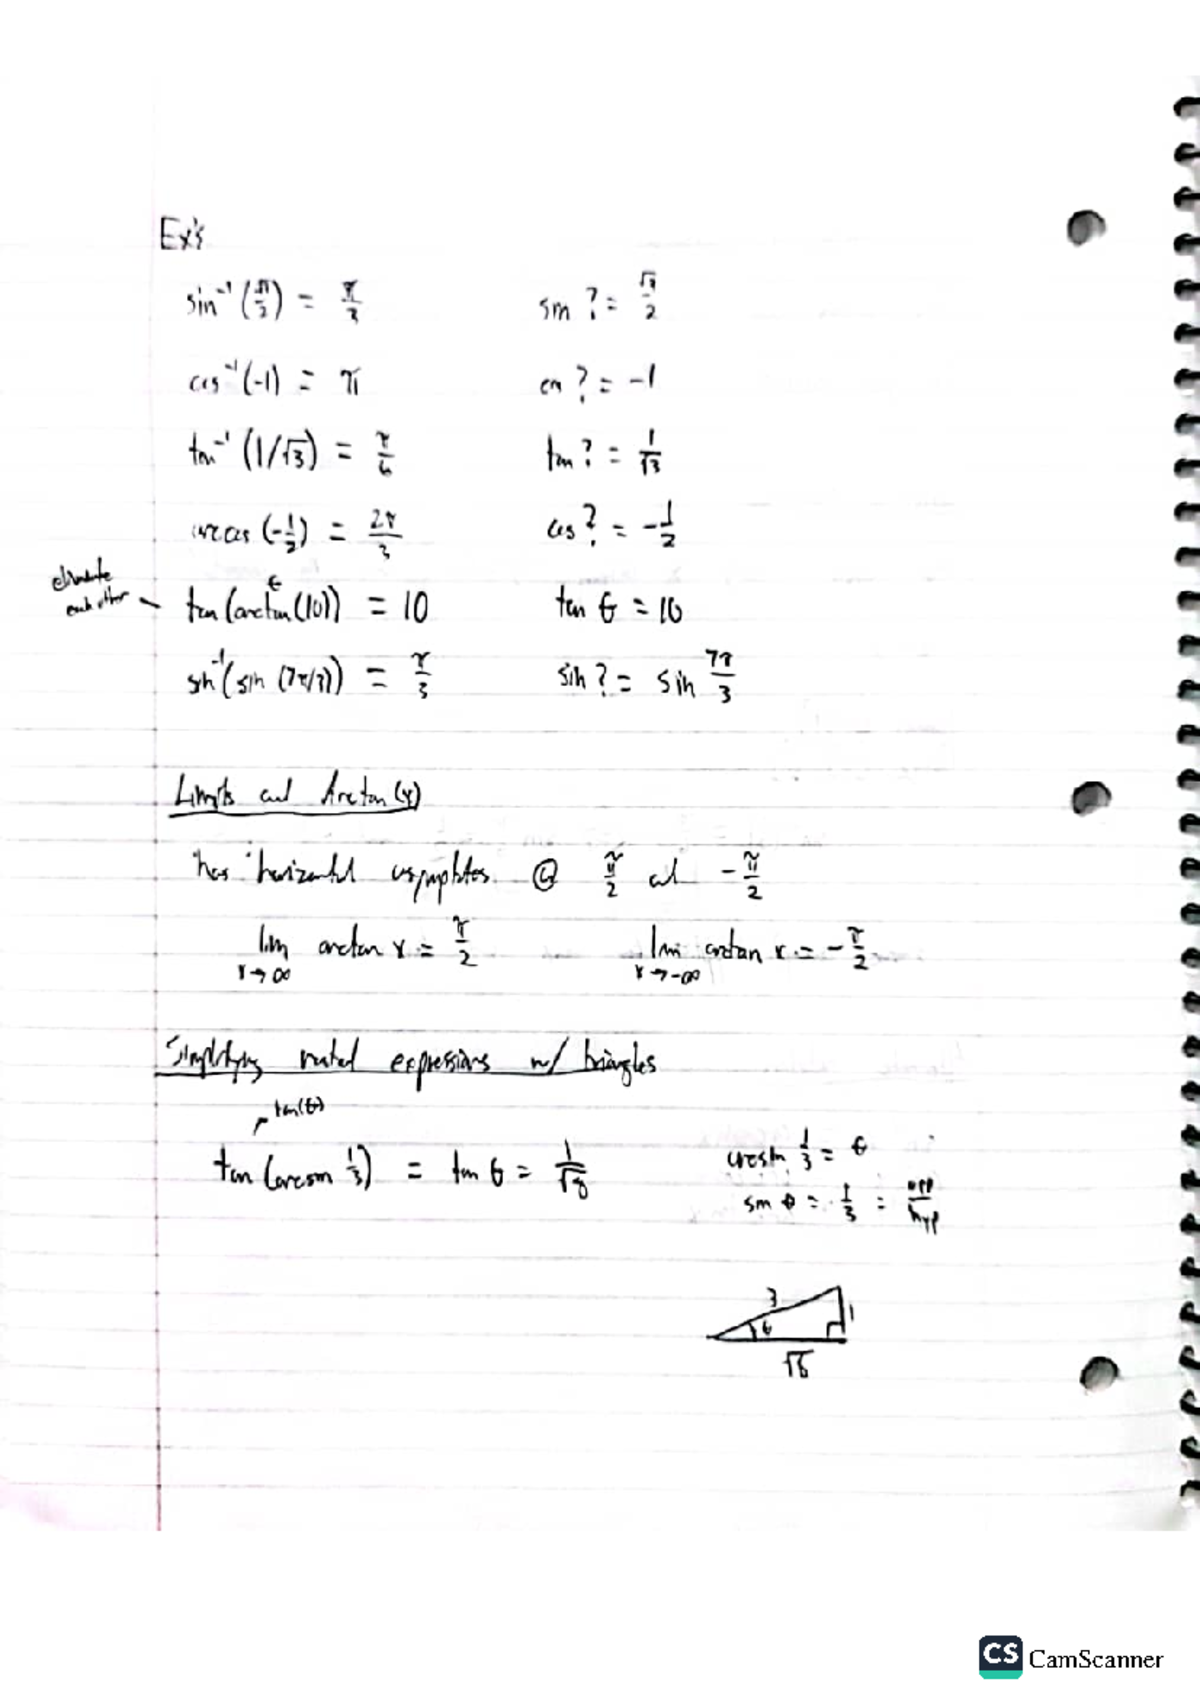 Ex's
sin⁻¹(√3/2) = π/3    sin ? = √3/2
cos⁻¹(-1) = π    cos ? = -1
tan⁻¹(1/√3) = π/6    tan ? = 1/√3
arccos(-1/2) = 2π/3    cos ? = -1/2
eliminate
each other
θ
tan(arctan(10)) = 10    tan θ = 10
sin⁻¹(sin(7π/3)) = π/3    sin ? = sin 7π/3
Limits and Arctan(x)
has horizontal asymptotes @ π/2 and -π/2
lim x→∞ arctan x = π/2    lim x→-∞ arctan x = -π/2
Simplifying nested expressions w/ triangles
tan(θ)
tan(arcsin 1/3) = tan θ = 1/√8    arcsin 1/3 = θ
sin θ = 1/3 = opp/hyp
3
θ 1
√8
CS CamScanner